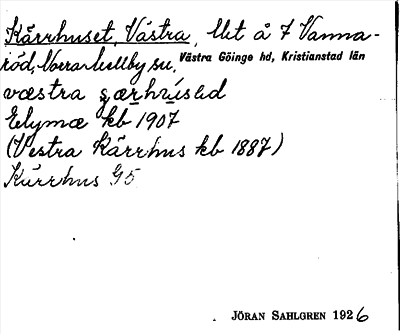 Kärrhuset, Västra, lht å 7 Vanna-
röd, Norra Mellby sn, Västra Göinge hd, Kristianstad län
væstra
Elymæ kb 1907
(Vestra Kärrhus kb 1887)
Kärrhus G5
JÖRAN SAHLGREN 1926